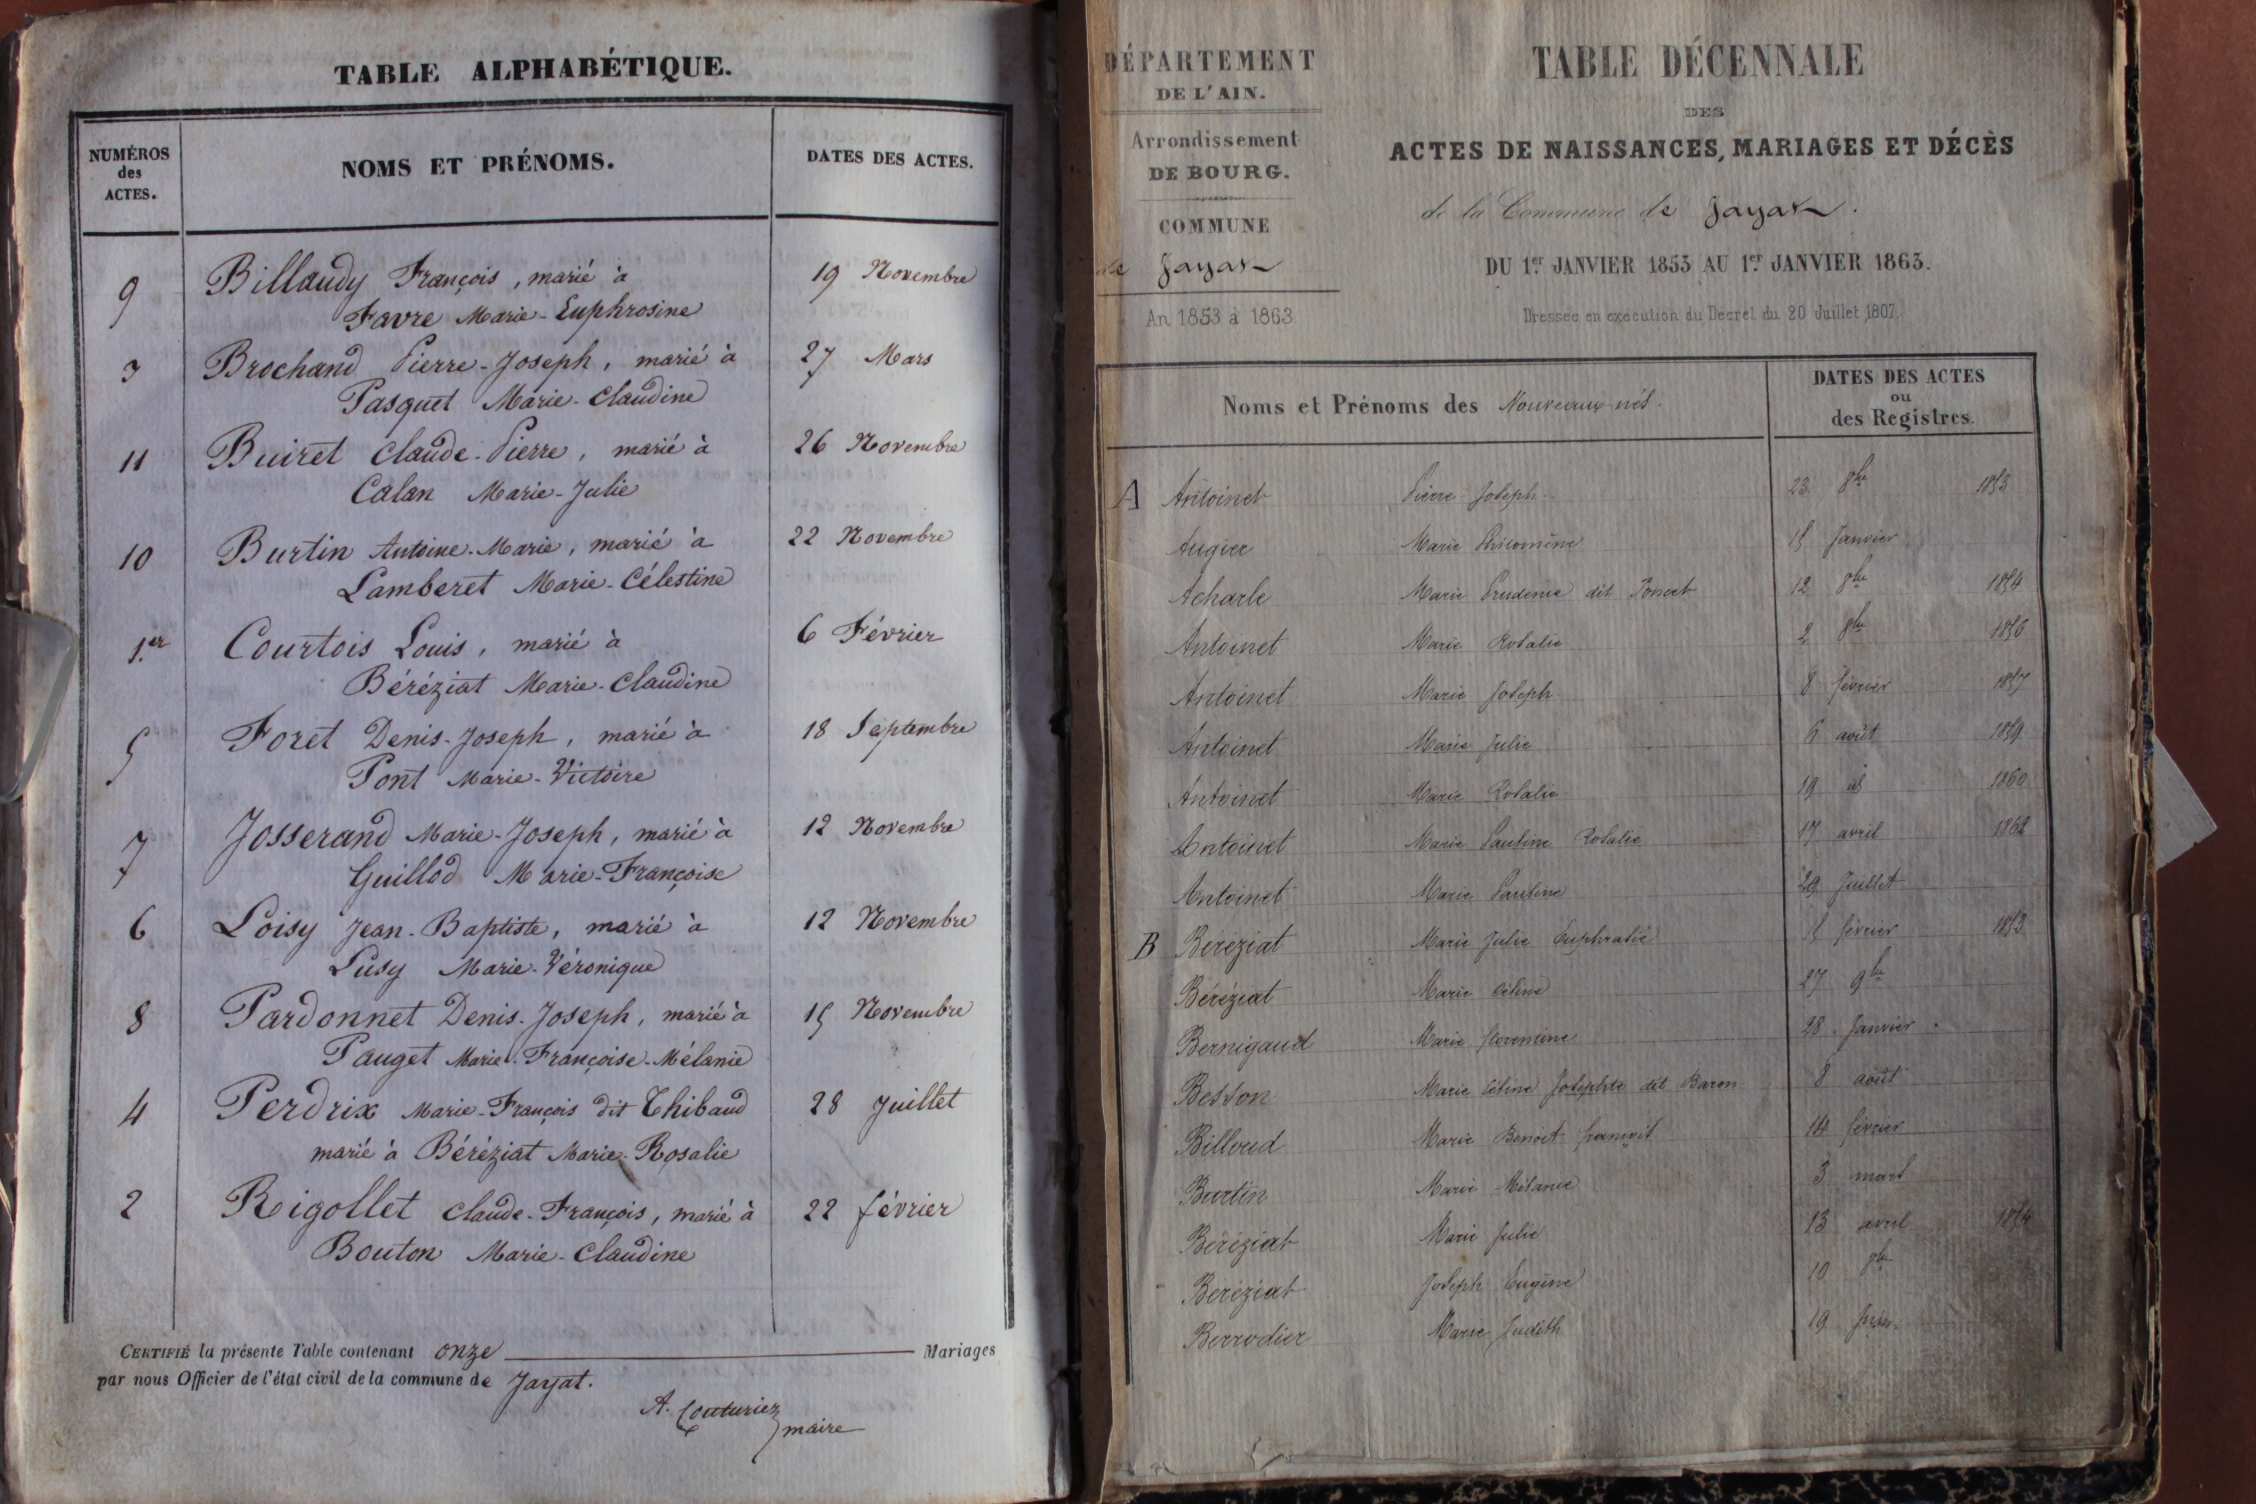 TABLE ALPHABÉTIQUE.
NUMÉROS
des
ACTES.
NOMS ET PRÉNOMS.
DATES DES ACTES.
9 Billaudy François, marié à 19 Novembre
Favre Marie-Euphrosine
3 Brochand Pierre-Joseph, marié à 27 Mars
Pasquet Marie-Claudine
11 Buiret Claude-Pierre, marié à 26 Novembre
Calan Marie-Julie
10 Burtin Antoine-Marie, marié à 22 Novembre
Lamberet Marie-Célestine
1.er Courtois Louis, marié à 6 Février
Béréziat Marie-Claudine
5 Foret Denis-Joseph, marié à 18 Septembre
Pont Marie-Victoire
7 Josserand Marie-Joseph, marié à 12 Novembre
Guillod Marie-Françoise
6 Loisy Jean-Baptiste, marié à 12 Novembre
Lusy Marie-Véronique
8 Pardonnet Denis-Joseph, marié à 15 Novembre
Pauget Marie-Françoise-Mélanie
4 Perdrix Marie-François dit Thibaud 28 Juillet
marié à Béréziat Marie-Rosalie
2 Rigollet Claude-François, marié à 22 février
Bouton Marie-Claudine
CERTIFIÉ la présente Table contenant onze Mariages
par nous Officier de l'état civil de la commune de Jayat.
A. Couturier
maire
DÉPARTEMENT
DE L'AIN.
Arrondissement
DE BOURG.
COMMUNE
de Jayat
An 1853 à 1863
TABLE DÉCENNALE
DES
ACTES DE NAISSANCES, MARIAGES ET DÉCÈS
de la Commune de Jayat.
DU 1er JANVIER 1853 AU 1er JANVIER 1863.
Dressée en exécution du Décret du 20 Juillet 1807.
Noms et Prénoms des Nouveaux-nés.
DATES DES ACTES
ou
des Registres.
A Antoinet Pierre Joseph 23 8bre 1853
Augier Marie Philomène 15 Janvier
Acharle Marie Prudence dit Poncet 12 8bre 1854
Antoinet Marie Rosalie 2 8bre 1856
Antoinet Marie Joseph 8 février 1857
Antoinet Marie Julie 6 août 1859
Antoinet Marie Rosalie 19 id 1860
Antoinet Marie Pauline Rosalie 17 avril 1862
Antoinet Marie Pauline 29 Juillet
B Béréziat Marie Julie Euphrasie 15 février 1853
Béréziat Marie Céline 27 9bre
Bernigaud Marie 28 Janvier
Besson Marie Céline Josephte dit Baron 8 août
Billoud Marie Benoit François 14 février
Burtin Marie Mélanie 3 mars
Béréziat Marie Julie 13 avril 1854
Béréziat Joseph Eugène 10 9bre
Berrodier Marie Judith 19